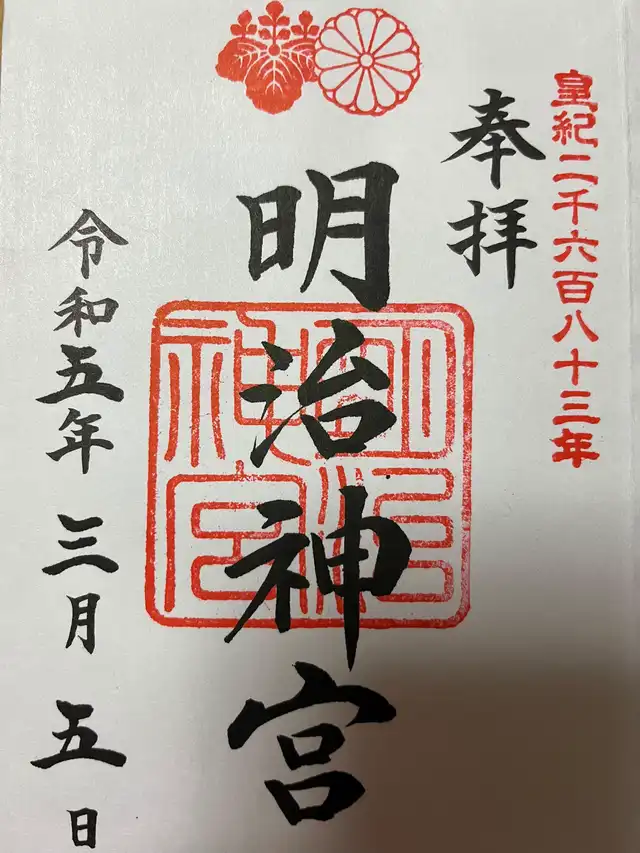 皇紀二千六百八十三年
奉拝
明治神宮
明治神宮
令和五年三月五日